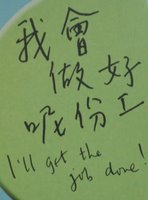 我會
做好
呢份工
I'll get the
job done!